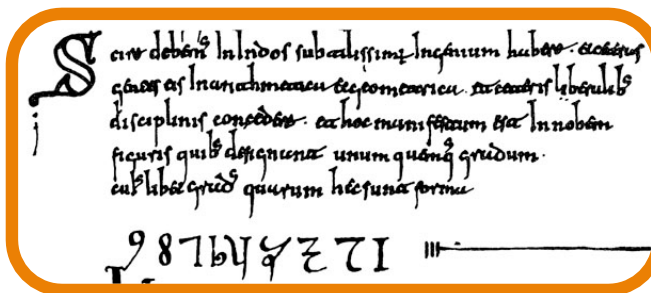 Scire debemꝰ InIndos subtilissimū Ingenium habere · et ceteras
gentes eis Inarithmetica et geometrica · et ceteris liberalibꝰ
disciplinis concedere · et hoc manifestum est Innobem
figuris quibꝰ designant unum quemqꝫ gradum ·
cuiꝰlibet gradꝰ quarum hec sunt forma
9 8 7 6 5 4 3 2 1